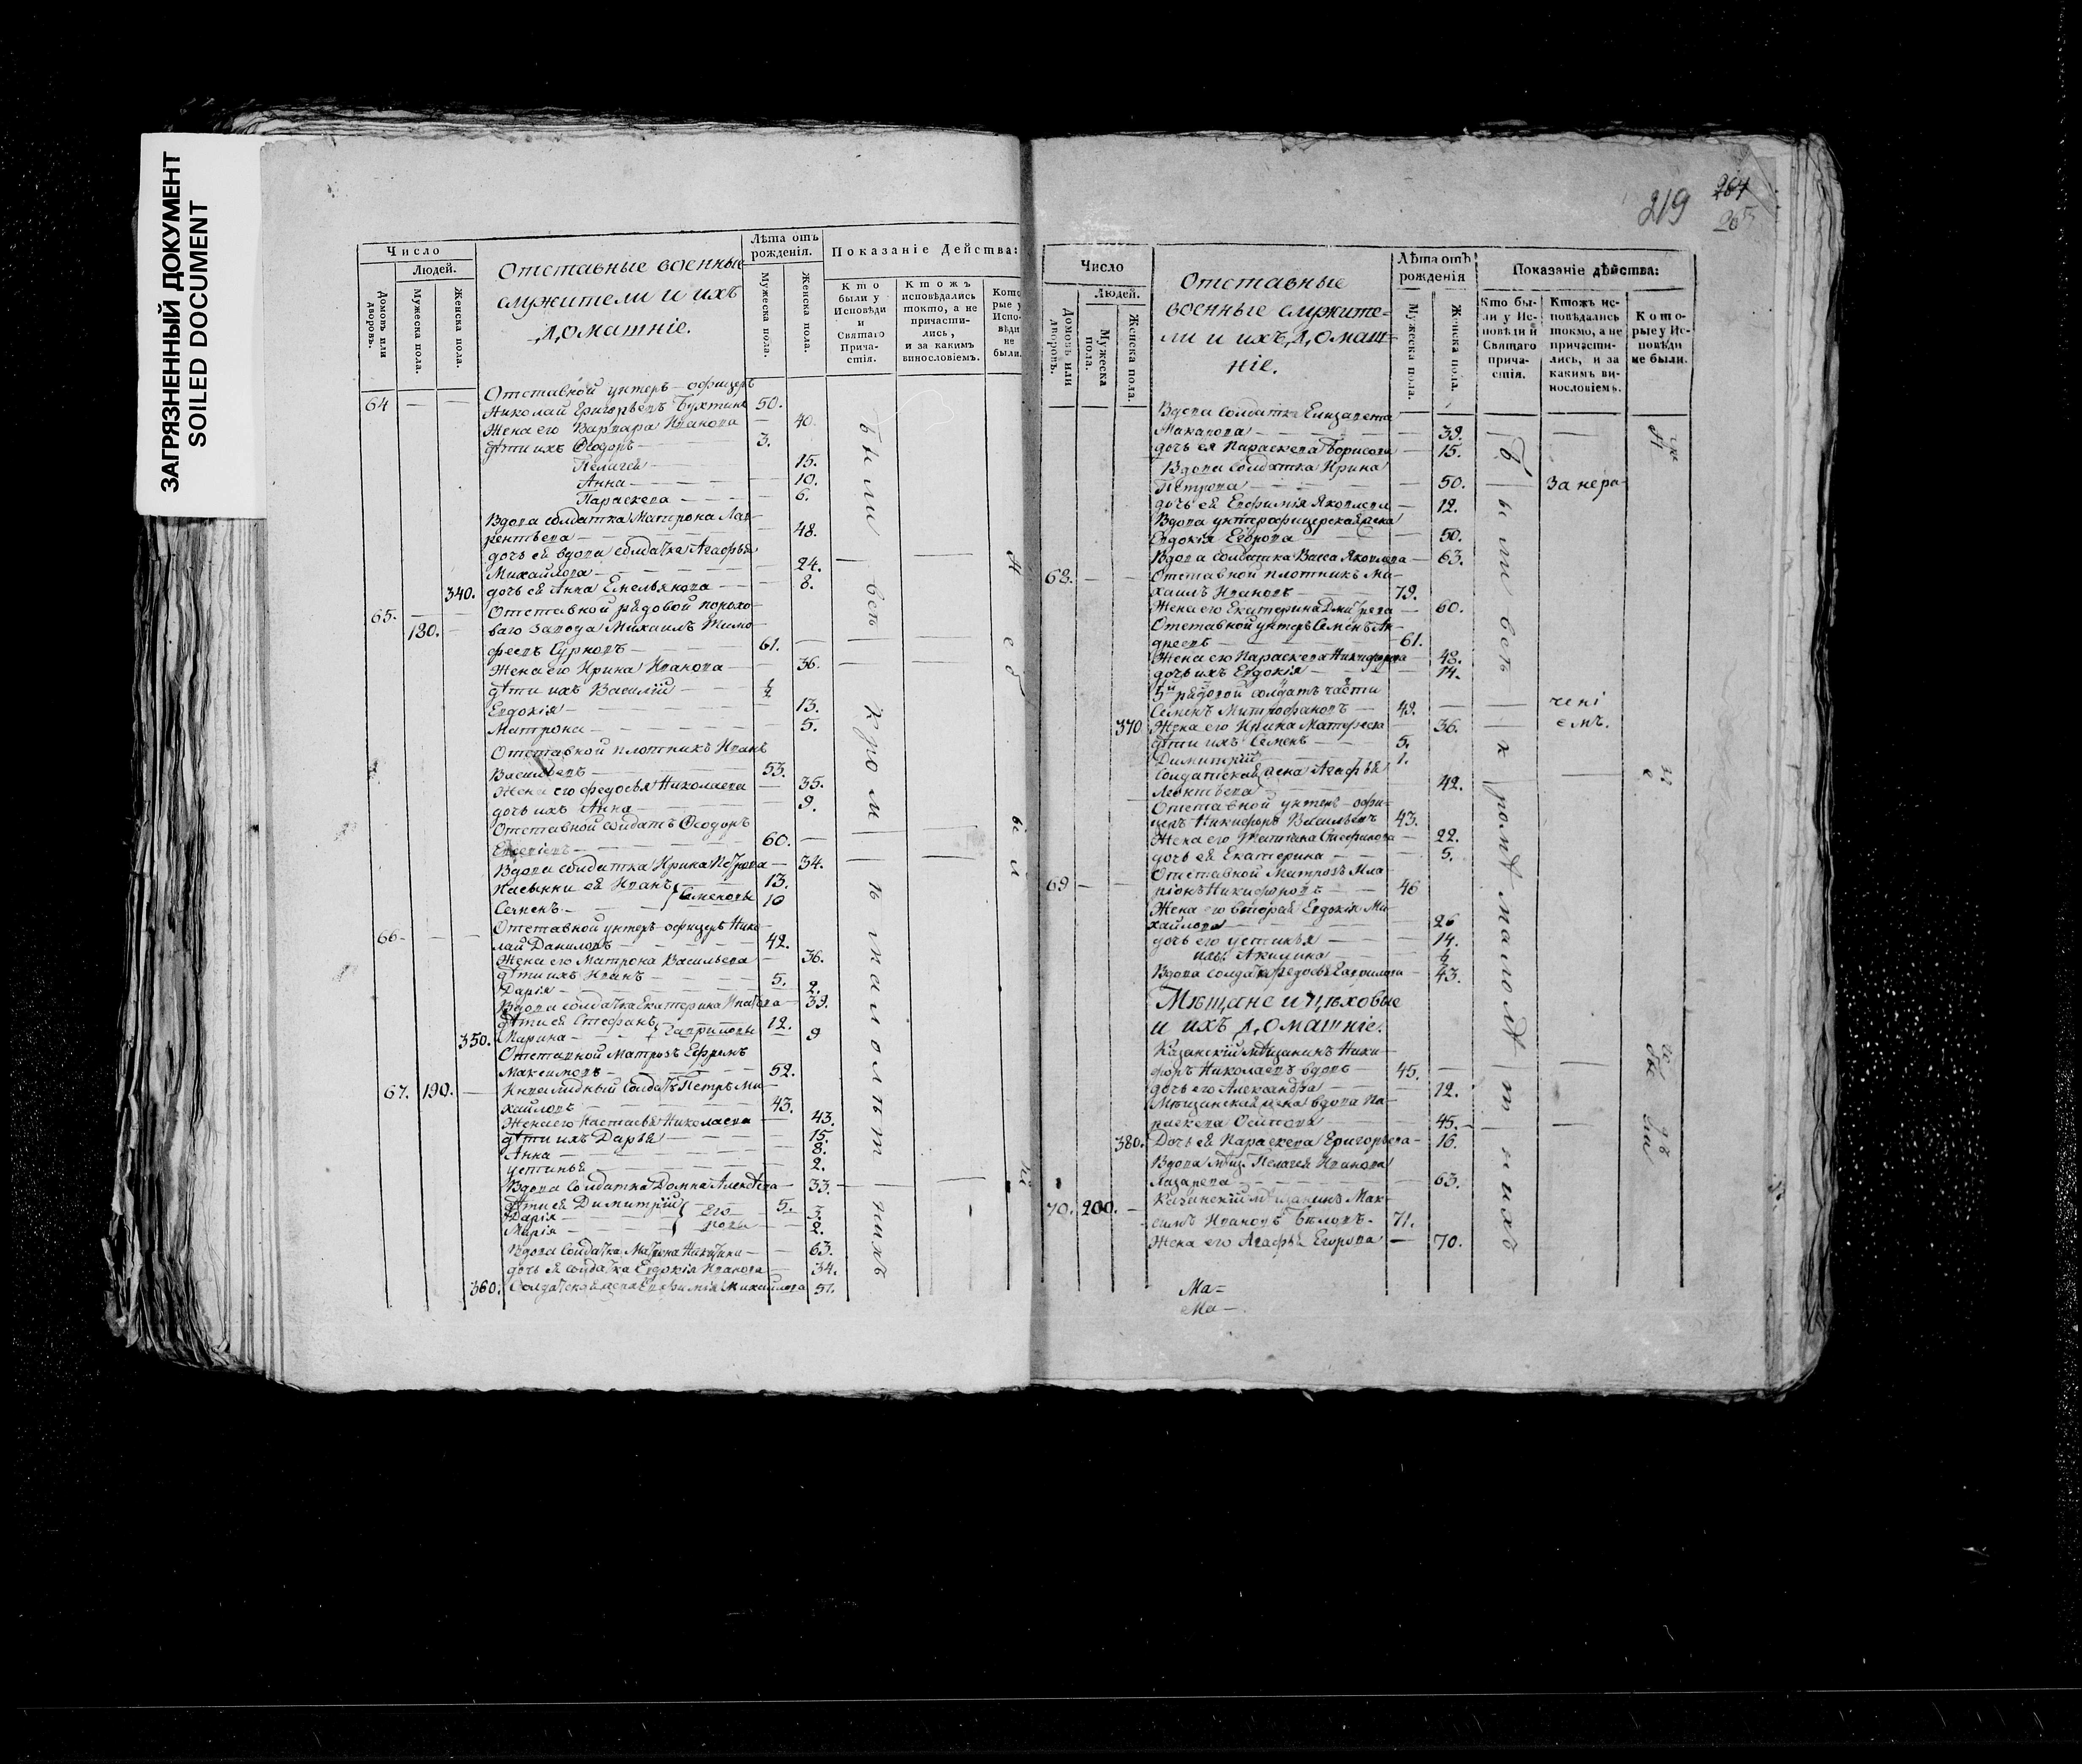 ЗАГРЯЗНЕННЫЙ ДОКУМЕНТ
SOILED DOCUMENT
Число
Людей.
Домовъ или дворовъ.
Мужеска пола.
Женска пола.
Отставные военные
служители и ихъ
домашніе.
Лѣта отъ
рожденія.
Мужеска пола.
Женска пола.
Показаніе Действа:
Кто
были у
Исповѣди
и
Святаго
Прича-
стія.
Ктожъ
исповѣдались
токто, а не
причасти-
лись,
и за какимъ
винословіемъ.
Кото
рые у
Испо-
вѣди
не
были.
Отставной унтеръ-офицеръ
64 — — Николай Григорьевъ 50.
Жена его Варвара Иванова — 40.
дѣти ихъ Ѳеодоръ 3.
Пелагея 15.
Анна 10.
Параскева 6.
Вдова солдатка Матрона Лав-
рентьева 48.
дочь ея вдова солдатка Агафья
Михайлова 24.
340. дочь ея Анна Емельянова 8.
65. — Отставной рядовой порохо-
180. — ваго завода Михаилъ Тимо-
феевъ 61.
Жена его Ирина Иванова 36.
дѣти ихъ Василій ½
Евдокія 13.
Матрона 5.
Отставной плотникъ Иванъ
Васильевъ 53.
Жена его Федосья Николаева — 35.
дочь ихъ Анна 9.
Отставной солдатъ Ѳеодоръ
60.
Вдова солдатка Ирина Петрова — 34.
Пасынки ея Иванъ 13.
Семенъ Семеновы 10
Отставной унтеръ-офицеръ Нико-
66 — — лай Даниловъ 42.
Жена его Матрона Васильева 36.
дѣти ихъ Иванъ 5.
Дарія 2.
Вдова солдатка Екатерина 39.
дѣти ея Стефанъ 12.
350. Марина Гавриловы 9
Отставной Матрозъ Ефремъ
Максимовъ 52.
67. 190. — Инвалидный солдатъ Петръ Ми-
хайловъ 43.
Жена его Настасья Николаева 43.
дѣти ихъ Дарья 15.
Анна 8.
Устинья 2.
Вдова солдатка Домна Алексѣева — 33.
дѣти ея Димитрій 5.
Дарія Его 3.
Марія ровы 2.
Вдова солдатка Матрона Никитина — 63.
дочь ея солдатка Евдокія Иванова 34.
360. Солдатская жена Евфимія Михайлова 51.
были всѣ кромѣ малолѣтнихъ
219
264
265
Число
Людей.
Домовъ или дворовъ.
Мужеска пола.
Женска пола.
Отставные
военные служите-
ли и ихъ домаш-
ніе.
Лѣта отъ
рожденія
Мужеска пола.
Женска пола.
Показаніе дѣйства:
Кто бы-
ли у Ис-
повѣди и
Святаго
прича-
стія.
Ктожъ ис-
повѣдались
токмо, а не
причасти-
лись, и за
какимъ ви-
нословіемъ.
Кото-
рые у Ис-
повѣди
не были.
Вдова солдатка Елизавета
Макарова 39.
дочь ея Параскева Борисова — 15.
Вдова солдатка Ирина
Петрова — 50. За нера-
дочь ея Евфимія Яковлева — 12.
Вдова унтерофицерская жена
Евдокія Егорова — 50.
Вдова солдатка Васса Яковлева — 63.
68. — — Отставной плотникъ Ми-
хаилъ Ивановъ 79.
Жена его Екатерина Дмитрева — 60.
Отставной унтеръ Семенъ Ан-
дреевъ 61.
Жена его Параскева Никифорова — 48.
дочь ихъ Евдокія 14.
5й рядовой солдатъ части
Семенъ Митрофановъ 49. чені
370 Жена его Ирина Матвеева 36. емъ.
дѣти ихъ Семенъ 5.
Димитрій 1.
Солдатская жена Агафья
Леонтьева 42.
Отставной унтеръ-офи-
церъ Никифоръ Васильевъ 43.
Жена его Татіана Стефанова — 22.
дочь ея Екатерина 5.
Отставной Матрозъ Ила-
69 — ріонъ Никифоровъ 46
Жена его вторая Евдокія Ми-
хайлова 26
дочь его Устинья 14.
Акилина ½
Вдова солдатка Федосья Гаврилова — 43.
Мѣщане и цѣховые
и ихъ домашніе.
Казанскій мѣщанинъ Ники-
форъ Николаевъ вдовъ 45.
дочь его Александра 12.
Мѣщанская жена вдова Па-
раскева Осипова 45.
380. Дочь ея Параскева Григорьева — 16.
Вдова мѣщ. Пелагея Иванова
Лазарева 63.
70. 200. — Казанскій мѣщанинъ Мак-
симъ Ивановъ Бѣловъ. 71.
Жена его Агафья Егорова — 70.
были всѣ кромѣ малолѣтнихъ
Ма=
Ма—